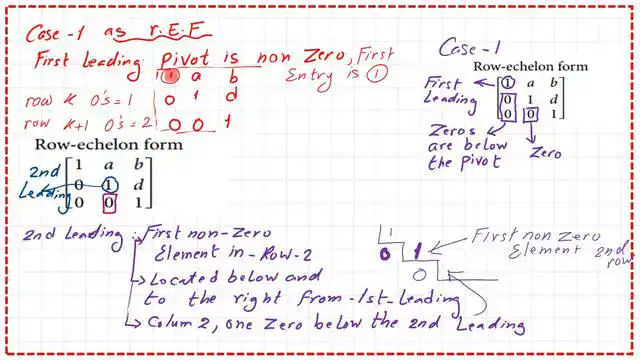 Case-1 as r.E.F
First Leading pivot is non Zero, First
Entry is 1
1 a b
row k 0's=1 0 1 d
row k+1 0's=2 0 0 1
Row-echelon form
1 a b
0 1 d
0 0 1
2nd
Leading
Case-1
Row-echelon form
1 a b
0 1 d
0 0 1
First
Leading
Zeros
are below
the pivot
Zero
2nd Leading: First non-Zero
Element in-Row-2
Located below and
to the right from-1st-Leading
Colum 2, one Zero below the 2nd Leading
1
0 1
0
First non Zero
Element 2nd
row